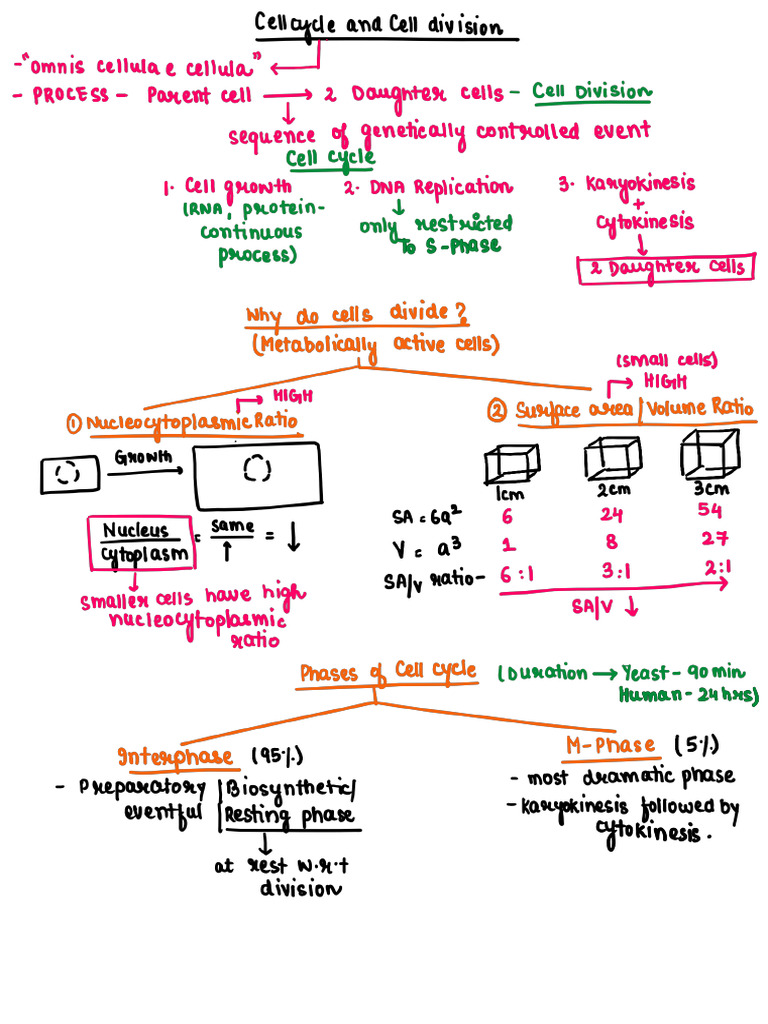 Cell cycle and Cell division
- "omnis cellula e cellula" ←
- PROCESS - Parent cell → 2 Daughter cells - Cell Division
↓
sequence of genetically controlled event
Cell cycle
1. Cell growth
(RNA, protein-
continuous
process)
2. DNA Replication
↓
only restricted
To S-Phase
3. Karyokinesis
+
Cytokinesis
↓
2 Daughter cells
Why do cells divide?
(Metabolically active cells)
→ HIGH
① Nucleocytoplasmic Ratio
Growth
Nucleus/Cytoplasm = same/↑ = ↓
↓
smaller cells have high
nucleocytoplasmic
ratio
(small cells)
→ HIGH
② Surface area/Volume Ratio
1cm 2cm 3cm
SA = 6a² 6 24 54
V = a³ 1 8 27
SA/V ratio- 6:1 3:1 2:1
SA/V ↓
Phases of Cell cycle (Duration → Yeast - 90 min
Human - 24 hrs)
Interphase (95%)
- Preparatory | Biosynthetic/
eventful | Resting phase
↓
at rest w.r.t
division
M-Phase (5%)
- most dramatic phase
- Karyokinesis followed by
cytokinesis.